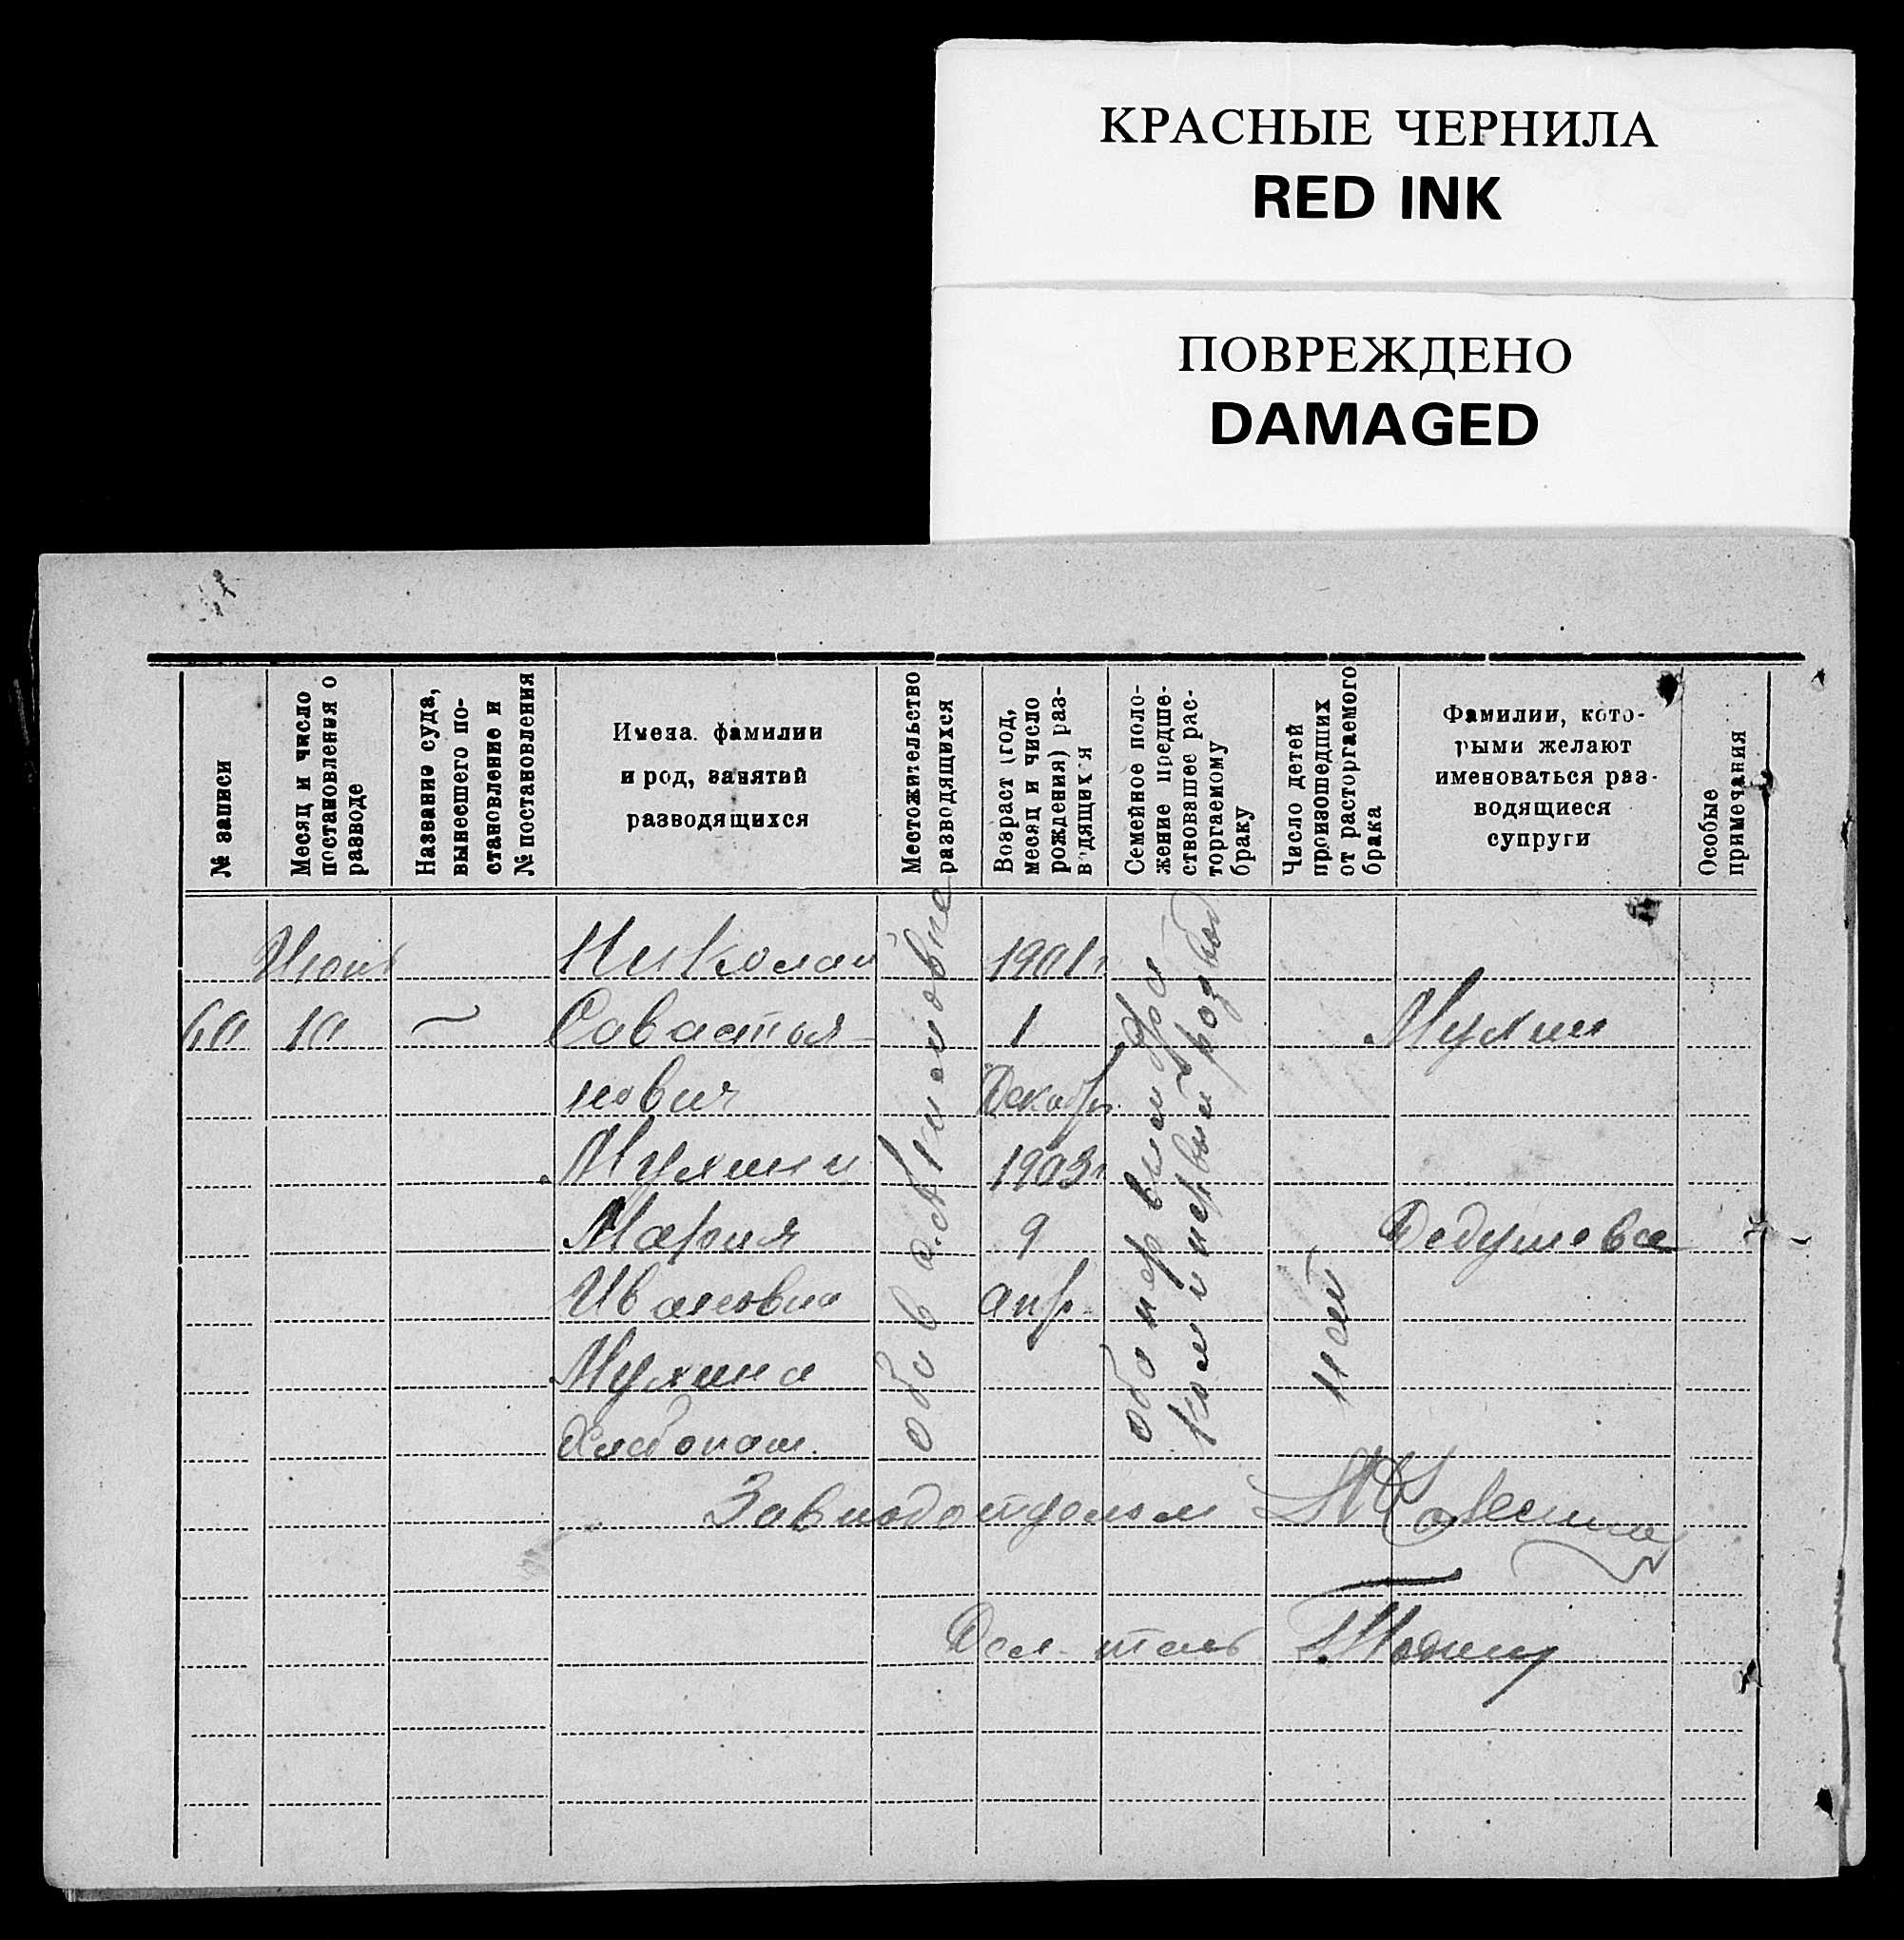 КРАСНЫЕ ЧЕРНИЛА
RED INK
ПОВРЕЖДЕНО
DAMAGED
№ записи
Месяц и число
постановления о
разводе
Название суда,
вынесшего по-
становление и
№ постановления
Имена. фамилии
и род, занятий
разводящихся
Местожительство
разводящихся
Возраст (год,
месяц и число
рождения) раз-
водящихся
Семейное поло-
жение предше-
ствовавшее рас-
торгаемому
браку
Число детей
происшедших
от расторгаемого
брака
Фамилии, кото-
рыми желают
именоваться раз-
водящиеся
супруги
Особые
примечания
Июнь
60
10
Николай
Савастья
нович
Мухин и
Мария
Ивановна
Мухина
Хлебопаш.
оба в
1901 г
1
Декабр
1903 г
9
апр.
оба первым бра
ком и первый развод
Мухин
Дедушева
Завподотделом